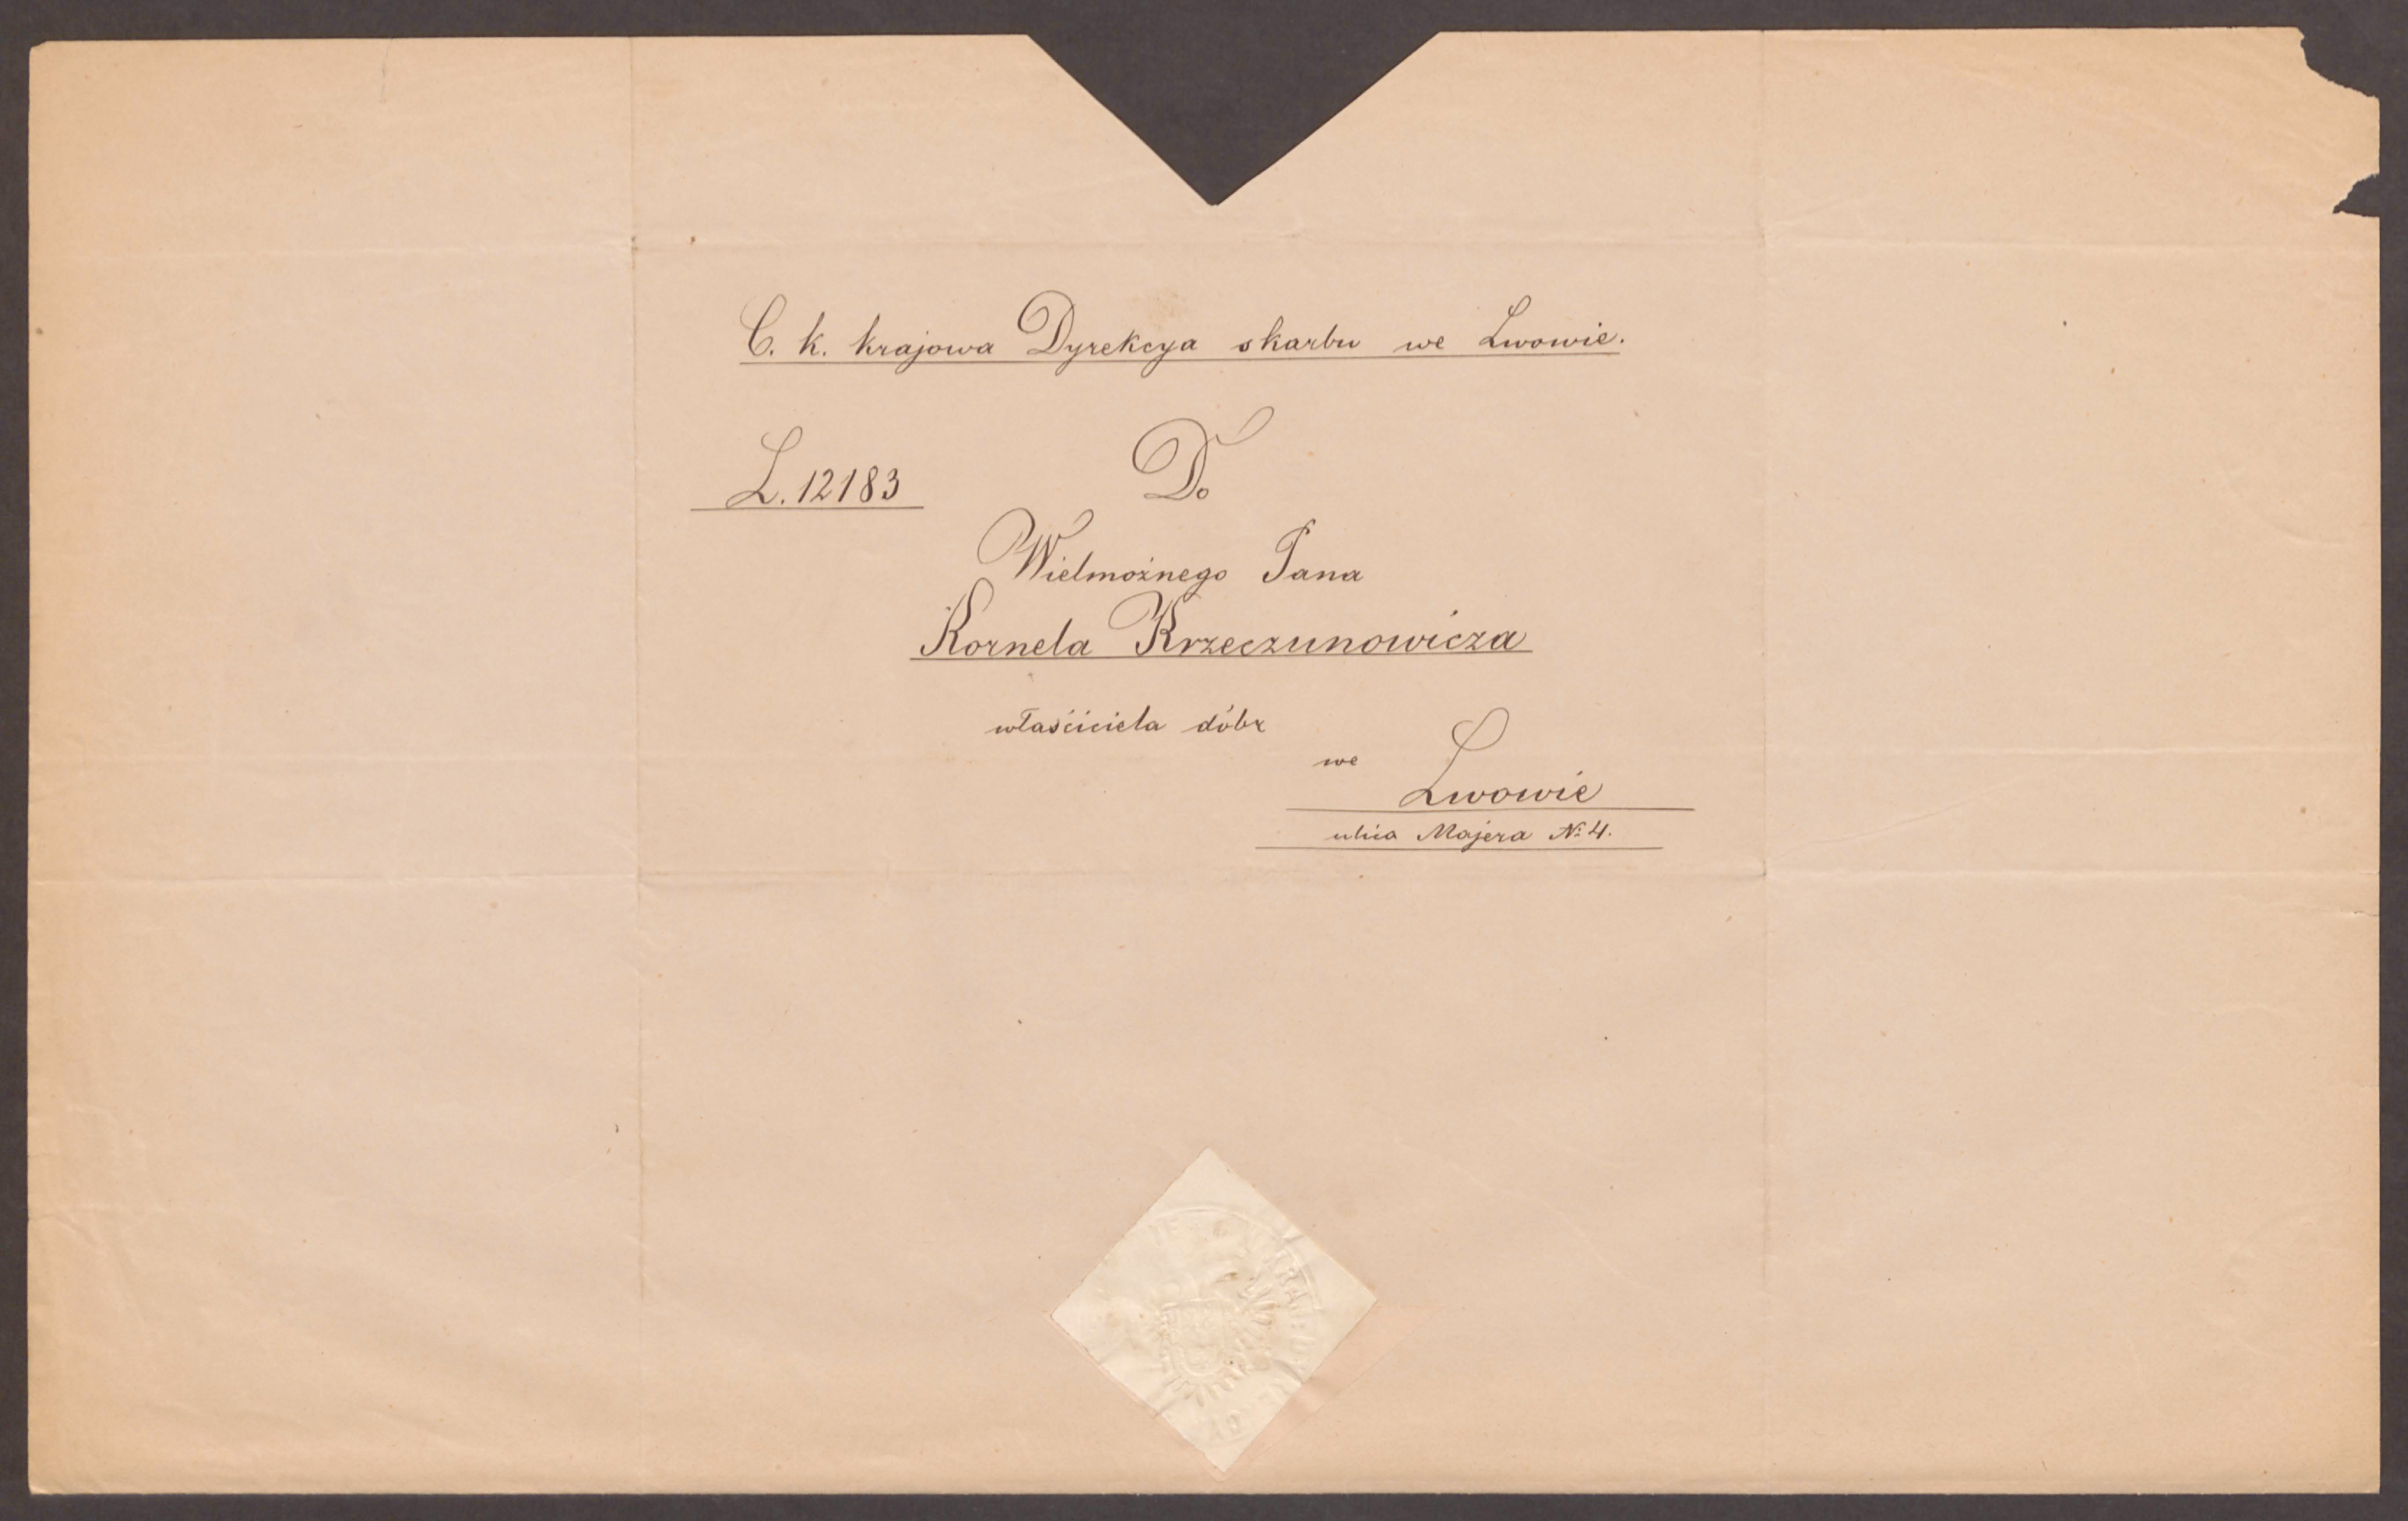 C. k. krajowa Dyrekcya skarbu we Lwowie.
L. 12183
Do
Wielmożnego Pana
Kornela Krzeczunowicza
właściciela dóbr
we
Lwowie
ulica Majera No 4.